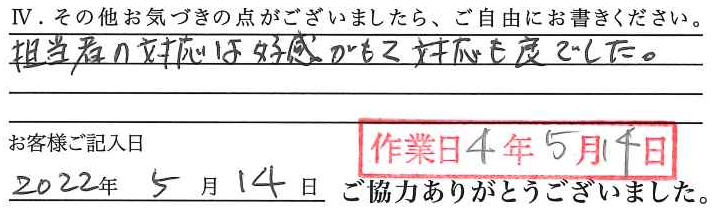 Ⅳ. その他お気づきの点がございましたら、ご自由にお書きください。
担当者の対応は好感がもて対応も度でした。
お客様ご記入日
作業日4年5月14日
2022年 5月14日
ご協力ありがとうございました。